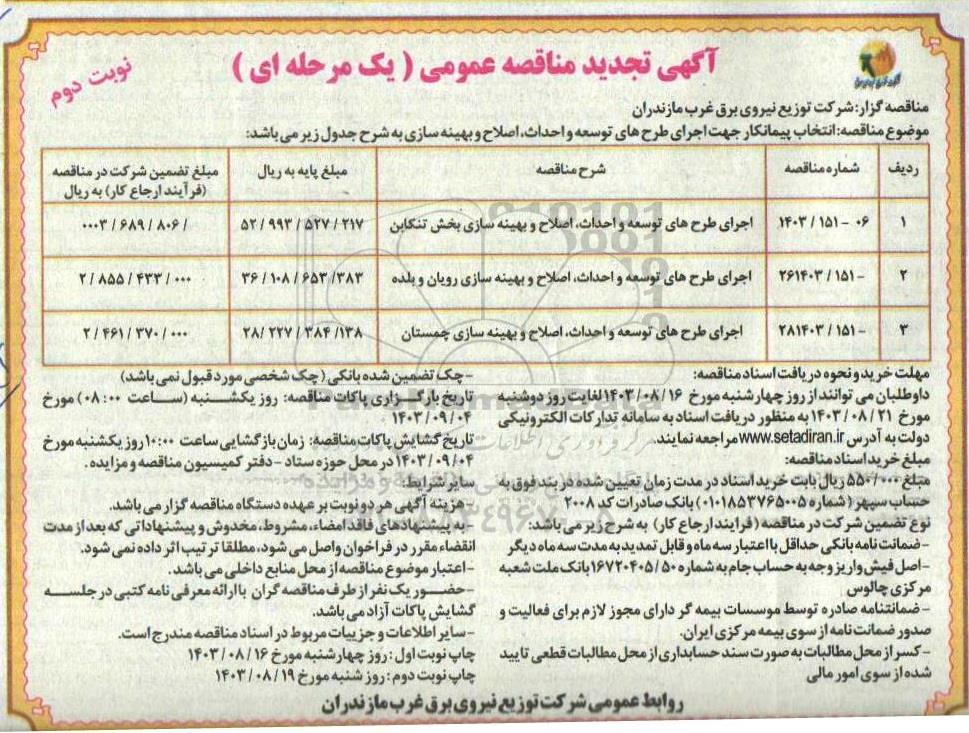 آگهی تجدید مناقصه عمومی ( یک مرحله ای )
نوبت دوم
مناقصه گزار: شرکت توزیع نیروی برق غرب مازندران
موضوع مناقصه: انتخاب پیمانکار جهت اجرای طرح های توسعه و احداث، اصلاح و بهینه سازی به شرح جدول زیر می باشد:
ردیف شماره مناقصه شرح مناقصه مبلغ پایه به ریال مبلغ تضمین شرکت در مناقصه (فرآیند ارجاع کار) به ریال
۱ ۱۴۰۳ / ۱۵۱ - ۰۶ اجرای طرح های توسعه و احداث، اصلاح و بهینه سازی بخش تنکابن ۵۲ / ۹۹۳ / ۵۲۷ / ۲۱۷ ۰۰۰۳ / ۶۸۹ / ۸۰۶ /
۲ ۲۶۱۴۰۳ / ۱۵۱ - اجرای طرح های توسعه و احداث، اصلاح و بهینه سازی رویان و بلده ۳۶ / ۱۰۸ / ۶۵۳ /۳۸۳ ۲ / ۸۵۵ / ۴۳۳ / ۰۰۰
۳ ۲۸۱۴۰۳ / ۱۵۱ - اجرای طرح های توسعه و احداث، اصلاح و بهینه سازی چمستان ۲۸/ ۲۲۷ / ۳۸۴ /۱۳۸ ۲ / ۴۶۱ / ۳۷۰ / ۰۰۰
مهلت خرید و نحوه دریافت اسناد مناقصه:
داوطلبان می توانند از روز چهارشنبه مورخ ۱۶ / ۰۸ / ۱۴۰۳ لغایت روز دوشنبه
مورخ ۲۱ / ۰۸ / ۱۴۰۳ به منظور دریافت اسناد به سامانه تدارکات الکترونیکی
دولت به آدرس www.setadiran.ir مراجعه نمایند.
مبلغ خرید اسناد مناقصه:
مبلغ ۵۵۰/۰۰۰ ریال بابت خرید اسناد در مدت زمان تعیین شده در بند فوق به
حساب سپهر (شماره ۰۱۰۱۸۵۳۷۶۵۰۰۵) بانک صادرات کد ۲۰۰۸
نوع تضمین شرکت در مناقصه (فرایند ارجاع کار) به شرح زیر می باشد:
-ضمانت نامه بانکی حداقل با اعتبار سه ماه و قابل تمدید به مدت سه ماه دیگر
-اصل فیش واریز وجه به حساب جام به شماره ۵۰ /۱۶۷۲۰۴۰۵ بانک ملت شعبه
مرکزی چالوس
-ضمانتنامه صادره توسط موسسات بیمه گر دارای مجوز لازم برای فعالیت و
صدور ضمانت نامه از سوی بیمه مرکزی ایران.
-کسر از محل مطالبات به صورت سند حسابداری از محل مطالبات قطعی تایید
شده از سوی امور مالی
-چک تضمین شده بانکی (چک شخصی مورد قبول نمی باشد)
تاریخ بارگزاری پاکات مناقصه: روز یکشنبه (ساعت ۰۸:۰۰) مورخ
۰۴ / ۰۹ / ۱۴۰۳
تاریخ گشایش پاکات مناقصه: زمان بازگشایی ساعت ۱۰:۰۰ روز یکشنبه مورخ
۰۴ / ۰۹ / ۱۴۰۳ در محل حوزه ستاد - دفتر کمیسیون مناقصه و مزایده.
سایر شرایط:
-هزینه آگهی هر دو نوبت بر عهده دستگاه مناقصه گزار می باشد.
-به پیشنهادهای فاقد امضاء، مشروط، مخدوش و پیشنهاداتی که بعد از مدت
انقضاء مقرر در فراخوان واصل می شود، مطلقا ترتیب اثر داده نمی شود.
-اعتبار موضوع مناقصه از محل منابع داخلی می باشد.
-حضور یک نفر از طرف مناقصه گران با ارائه معرفی نامه کتبی در جلسه
گشایش پاکات آزاد می باشد.
-سایر اطلاعات و جزییات مربوط در اسناد مناقصه مندرج است.
چاپ نوبت اول: روز چهارشنبه مورخ ۱۶ / ۰۸ / ۱۴۰۳
چاپ نوبت دوم: روز شنبه مورخ ۱۹ / ۰۸ / ۱۴۰۳
روابط عمومی شرکت توزیع نیروی برق غرب مازندران